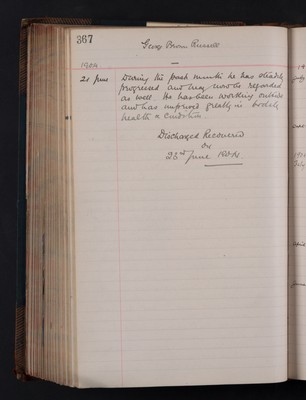 367
George Brown Russell
1904
21 June During the past month he has steadily
progressed and may now be regarded
as well. He has been working outside
and has improved greatly in bodily
health & condition.
Discharged Recovered
on
23rd June 1904